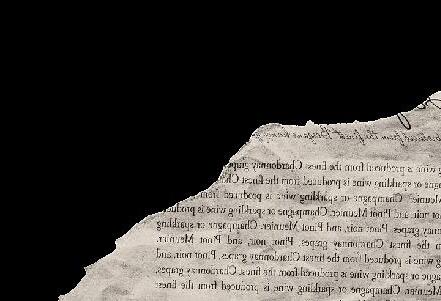 from the finest
wine is produced from the finest Chardonnay
or sparkling wine is produced from the finest
Champagne or sparkling wine is produced
and Pinot Meunier. Champagne or sparkling wine is
grapes, Pinot noir, and Pinot Meunier. Champagne or sparkling
the finest Chardonnay grapes, Pinot noir, and Pinot Meunier.
wine is produced from the finest Chardonnay grapes, Pinot noir, and
or sparkling wine is produced from the finest Chardonnay grapes,
Meunier. Champagne or sparkling wine is produced from the finest